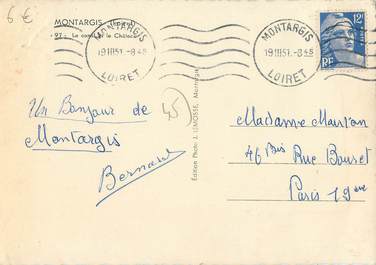 6 €
MONTARGIS (Loiret)
97 - Le canal et le Château
MONTARGIS
19 III 51. - 8 45
LOIRET
MONTARGIS
19 III 51. - 8 45
LOIRET
12F
RF
Un Bonjour de
Montargis
Bernard
45
Édition Photo J. LENOSSE, Montargis
Madame
46 Bis Rue Bouret
Paris 19ème